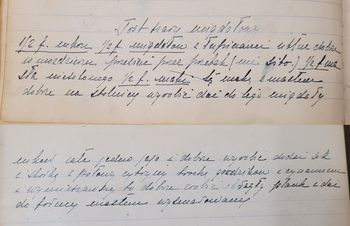 Tort szary migdałowy
1/2 f. cukru, 1/2 f. migdałów z łupinami utłuc dobrze
w moździerzu przesiać przez przetak (nie sito) 1/2 f. ma
sła niesłonego 1/2 f. mąki tę mąkę z masłem
dobrze na stolnicy wyrobić dać do tego migdały
cukier całe jedno jajo i dobrze wyrobić dodać sok
i skórkę z połowy cytryny trochę gwoździków i cynamonu
i wymieszawszy to dobrze zrobić placek i dać
do formy masłem wysmarowanej